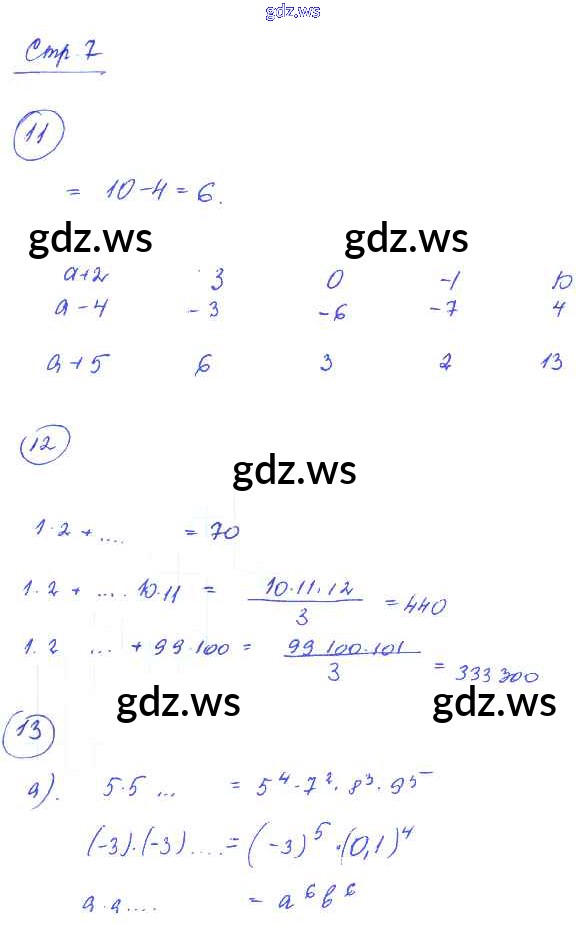 gdz.ws
Стр. 7
11
= 10 - 4 = 6.
gdz.ws gdz.ws
a+2 3 0 -1 10
a-4 -3 -6 -7 4
a+5 6 3 2 13
12
gdz.ws
1·2 + .... = 70
1·2 + .... 10·11 = 10·11·12 / 3 = 440
1·2 ... + 99·100 = 99 100·101 / 3 = 333 300
gdz.ws gdz.ws
13
а). 5·5 ... = 5⁴·7²·8³·9⁵
(-3)·(-3) .... = (-3)⁵·(0,1)⁴
a·a.... = a⁶b⁶